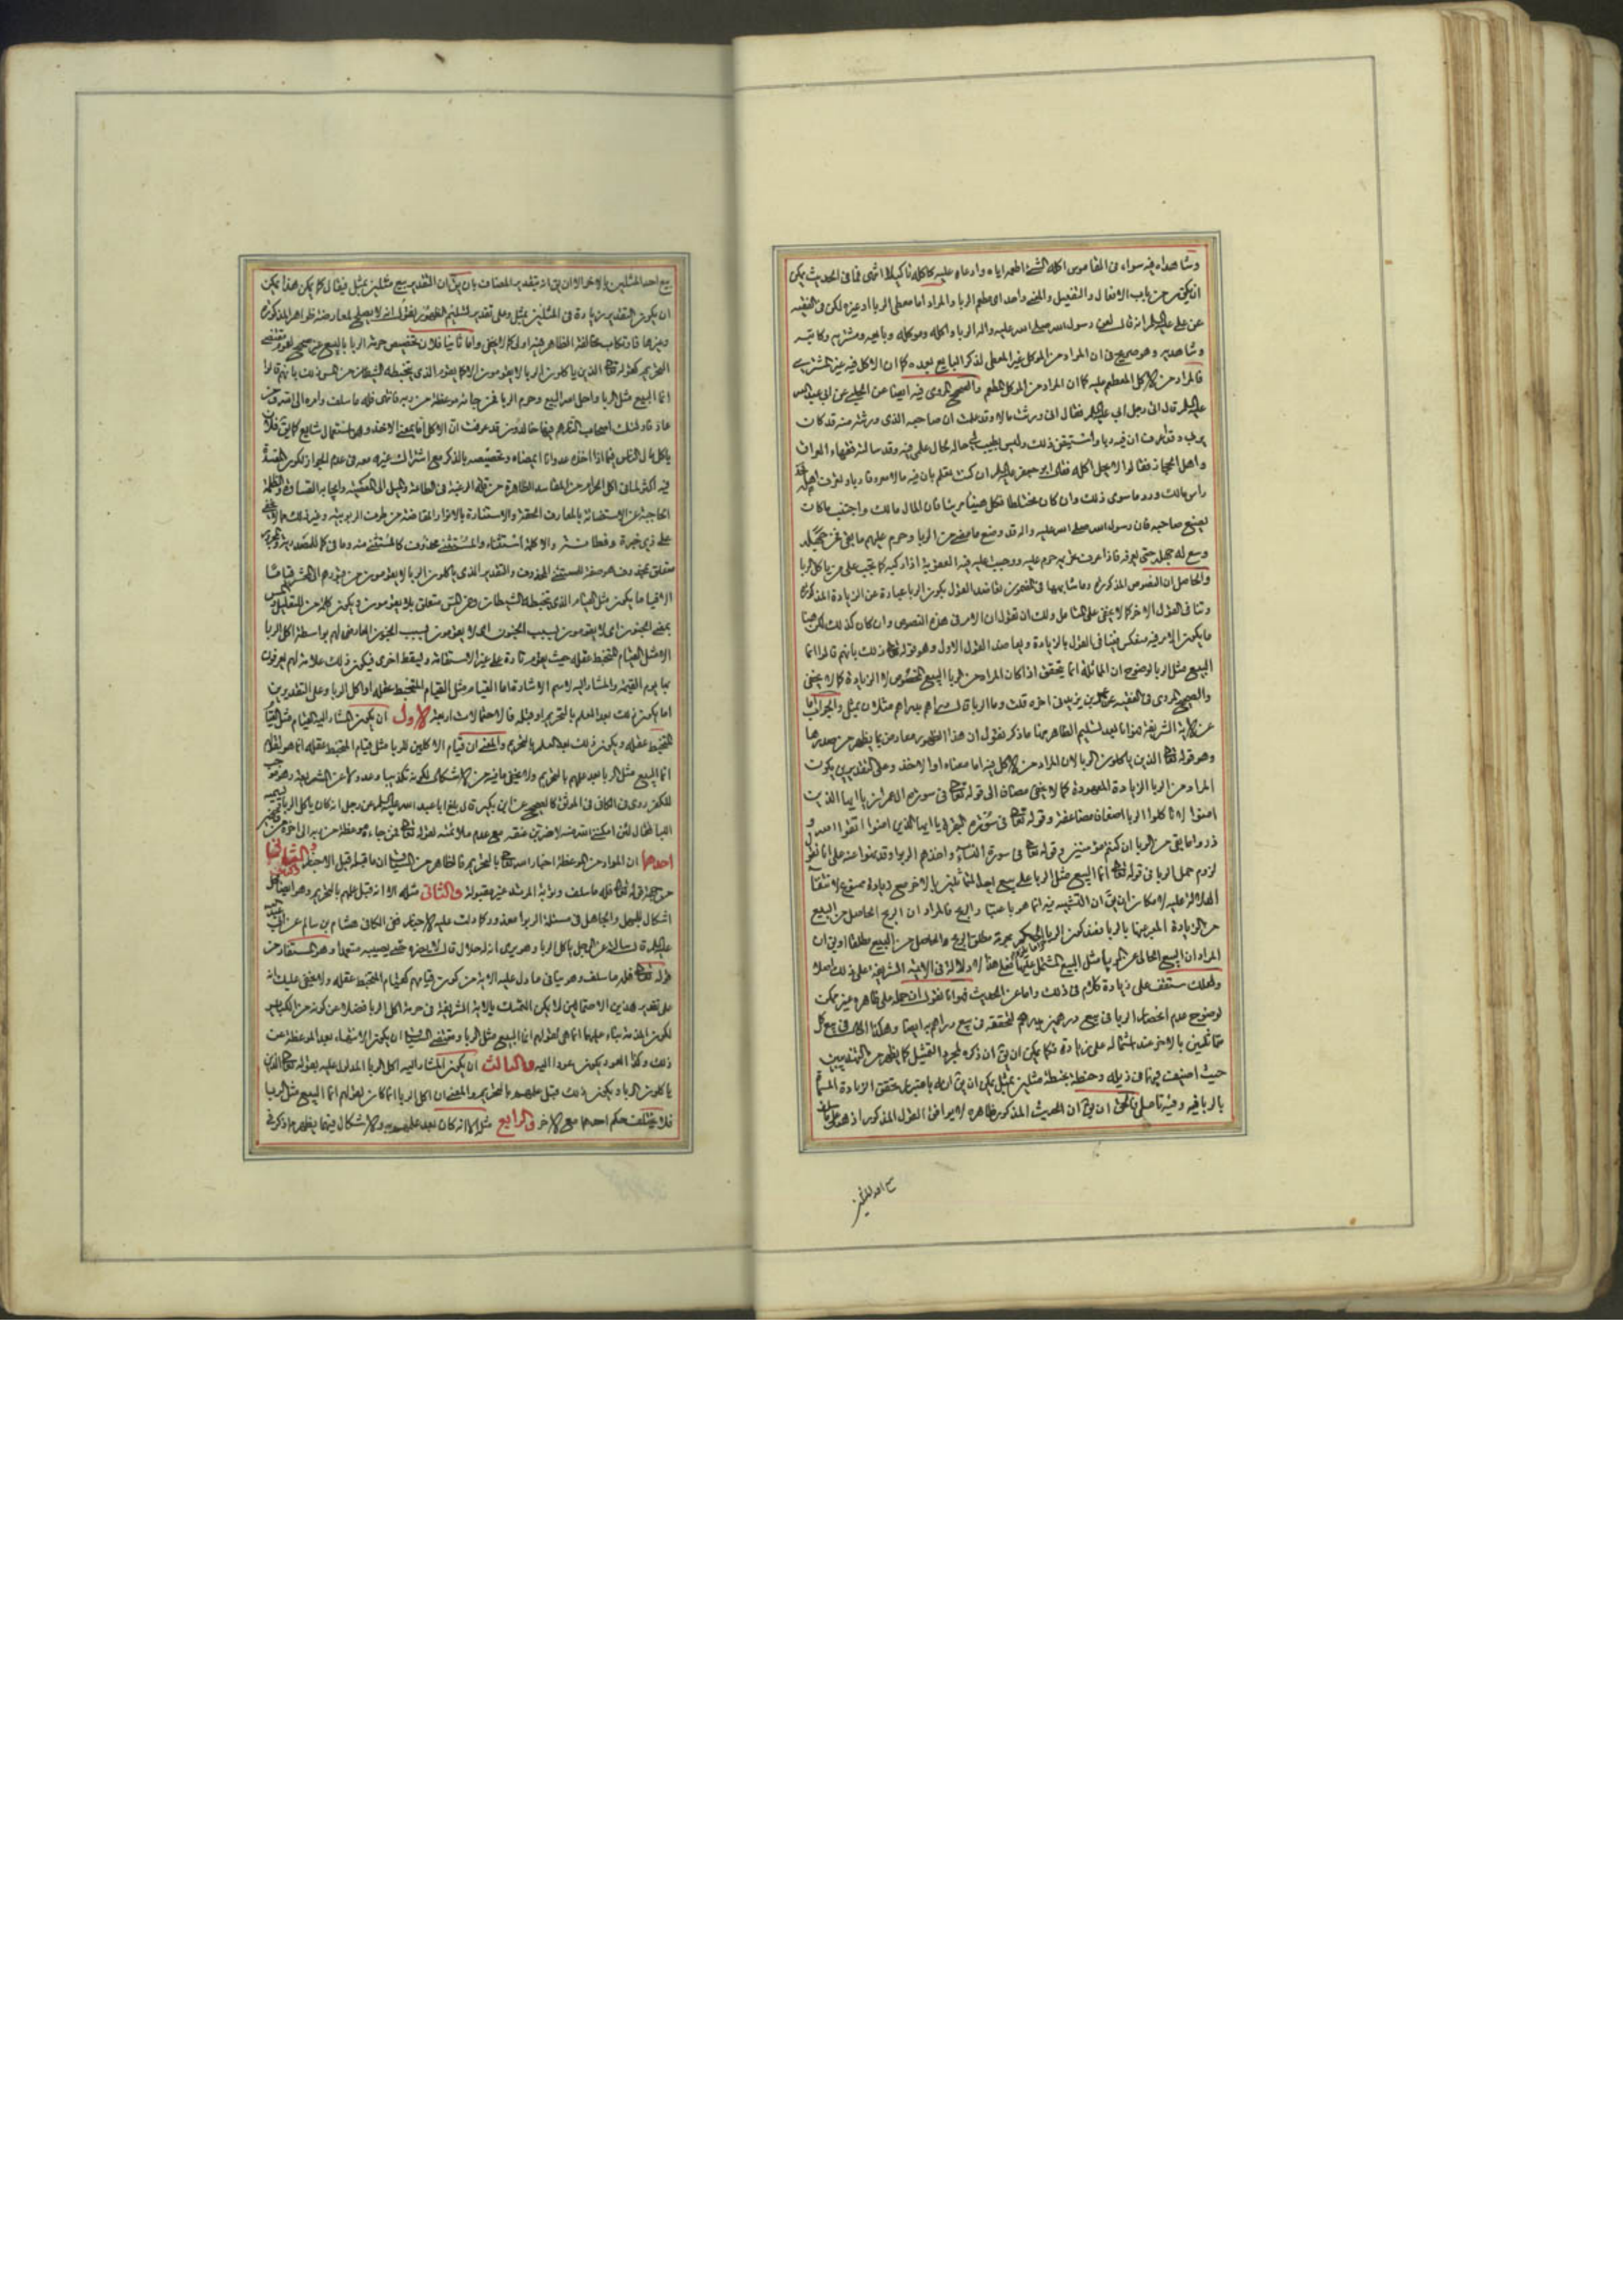 وشاهداه فيه سواء في القاموس اكله الشئ اطعمه اياه وادعاه عليه كاكله تاكيلا انتهى فما في الحديث يمكن
ان يكون من باب الافعال والتفعيل والمعنى واحد اى مطعم الربا والمراد اما معطى الربا او غيره لكن في الفقيه
عن على عليه السلام انه قال لعن رسول الله صلى الله عليه واله الربا واكله وموكله وبايعه ومشتريه وكاتبه
وشاهديه وهو صريح في ان المراد من الموكل غير المعطى لذكر البايع بعده كما ان الاكل فيه غير المشترى
فالمراد من الاكل المطعم عليه كما ان المراد من الموكل المطعم والصحيح المروى فيه ايضا عن الحلبي عن ابي عبد الله
عليه السلام قال اتى رجل ابي عليه السلام فقال انى ورثت مالا وقد علمت ان صاحبه الذى ورثته منه قد كان
يربى وقد اعرف ان فيه ربا واستيقن ذلك وليس يطيب لى حلاله لحال علمى فيه وقد سالت فقهاء العراق
واهل الحجاز فقالوا لا يحل اكله فقال ابو جعفر عليه السلام ان كنت تعلم بان فيه مالا معروفا ربا وتعرف اهله فخذ
راس مالك ورد ما سوى ذلك وان كان مختلطا فكله هنيئا مريئا فان المال مالك واجتنب ما كان
يصنع صاحبه فان رسول الله صلى الله عليه واله قد وضع ما مضى من الربا وحرم عليهم ما بقى فمن جهله
وسع له جهله حتى يعرفه فاذا عرف تحريمه حرم عليه ووجبت عليه فيه العقوبة اذا ركبه كما يجب على من ياكل الربا
والحاصل ان النصوص المذكورة وما شابهها في المضمون تعاضد القول بكون الربا عبارة عن الزيادة المذكورة
وتنافى القول الاخر كما لا يخفى على المتامل ولك ان تقول ان الامر في هذه النصوص وان كان كذلك لكن هنا
ما يكون الامر فيه منعكس فينافى القول بالزيادة ويعاضد القول الاول وهو قوله تعالى ذلك بانهم قالوا انما
البيع مثل الربا لوضوح ان المماثلة انما يتحقق اذا كان المراد من الربا البيع المخصوص لا الزيادة كما لا يخفى
والصحيح المروى في الفقيه عن عمر بن يزيد الى اخره قلت وما الربا قال دراهم بدراهم مثلان بمثل والجواب اما
عن الاية الشريفة فهو انا بعد تسليم الظاهر منها ما ذكر نقول ان هذا الظهور معارض بما يظهر من صدرها
وهو قوله تعالى الذين ياكلون الربا لان المراد من الاكل فيه اما معناه او الاخذ وعلى التقديرين يكون
المراد من الربا الزيادة المعهودة كما لا يخفى مضافا الى قوله تعالى في سورة ال عمران يا ايها الذين
امنوا لا تاكلوا الربا اضعافا مضاعفة وقوله تعالى في سورة البقرة يا ايها الذين امنوا اتقوا الله و
ذروا ما بقى من الربا ان كنتم مؤمنين وقوله تعالى في سورة النساء واخذهم الربوا وقد نهوا عنه على انا نقول
لزوم حمل الربا في قوله تعالى انما البيع مثل الربا على بيع احد المتماثلين بالاخر مع زيادة ممنوع لانتفاء
الدلالة عليه لامكان ان يق ان التشبيه فيه انما هو باعتبار الربح فالمراد ان الربح الحاصل من البيع
من الزيادة المعبر عنها بالربا فقد كون الربا
المراد ان البيع الخالى عن الربا مثل البيع المشتمل عليها فعلى هذا لا دلالة في الاية الشريفة على ذلك اصلا
ولعلك ستقف على زيادة كلام في ذلك واما عن الحديث فهو انا نقول ان حمله على ظاهره غير ممكن
لوضوح عدم اختصاص الربا في بيع درهمين بدرهم لتحققه في بيع دراهم بدراهم ايضا وهكذا الحال في بيع كل
متماثلين بالاخر عند اشتماله على زيادة فكما يمكن ان يق ان ذكره لمجرد التمثيل كما يظهر من التهذيبين
حيث اضيف فيهما في ذيله وحنطة بحنطة مثلين بمثل يمكن ان يق انه باعتبار تحقق الزيادة المسماة
بالربا فيه وفيه تامل فالحق ان يق ان الحديث المذكور ظاهره لا يوافق القول المذكور اذ هناك
بيع احد المثلين
بيع احد المثلين بالاخر الا ان يق انه بتقدير المضاف بان يق ان التقدير بيع مثلين بمثل فيقال كما يمكن هذا يمكن
ان يكون التقدير زيادة في المثلين بمثل وعلى تقدير تسليم الظهور نقول انه لا يصلح لمعارضة ظواهر المذكورة
وغيرها فارتكاب مخالفة الظاهر فيه اولى كما لا يخفى واما ثانيا فلان تخصيص حرمة الربا بالبيع غير صحيح لعموم مقتضى
التحريم كقوله تعالى الذين ياكلون الربا لا يقومون الا كما يقوم الذى يتخبطه الشيطان من المس ذلك بانهم قالوا
انما البيع مثل الربا واحل الله البيع وحرم الربا فمن جائه موعظة من ربه فانتهى فله ما سلف وامره الى الله ومن
عاد فاولئك اصحاب النار هم فيها خالدون قد عرفت ان الاكل اما بمعنى الاخذ وهو استعمال شايع كما يق فلان
ياكل مال الناس اذا اخذه عدوانا او بمعناه وتخصيصه بالذكر مع اشتراك غيره معه في عدم الجواز لكون المفسدة
فيه اكثر لما في اكل الحرام من المفاسد الظاهرة من قلة الرغبة في الطاعة والميل الى المعصية وايجابه القساوة والظلمة
الحاجبة عن الاستضائة بالمعارف الحقة والاستنارة بالانوار الفائضة من طرف الربوبية وغير ذلك مما لا يخفى
على ذى خبرة وفطانة والا كلمة استثناء والمستثنى محذوف كالمستثنى منه وما في كما للمصدرية والمجرور
متعلق بمحذوف هو صفة للمستثنى المحذوف والتقدير الذين ياكلون الربا لا يقومون من قبورهم الى المحشر قياما
الا قياما يكون مثل قيام الذى يتخبطه الشيطان ومن المس متعلق بلا يقومون ويكون كلمة من للتعليل والمس
بمعنى الجنون اى لا يقومون بسبب الجنون اى لا يقومون بسبب الجنون العارض لهم بواسطة اكل الربا
الا مثل القيام المتخبط عقله حيث يقوم تارة على غير الاستقامة ويسقط اخرى فيكون ذلك علامة لهم يعرفون
بها يوم القيمة والمشار اليه لاسم الاشارة اما القيام مثل القيام المتخبط عقله او اكل الربا وعلى التقديرين
اما يكون ذلك بعد العلم بالتحريم او قبله فالاحتمالات اربعة الاول ان يكون المشار اليه القيام مثل القيام
المتخبط عقله ويكون ذلك بعد العلم بالتحريم والمعنى ان قيام الاكلين للربا مثل قيام المتخبط عقله انما هو لقولهم
انما البيع مثل الربا بعد علمهم بالتحريم ولا يخفى ما فيه من الاشكال لكونه تكذيبا وعدولا عن الشريعة وهو موجب
للكفر روى في الكافي في الموثق كالصحيح عن ابن بكير قال بلغ ابا عبد الله عليه السلام عن رجل انه كان ياكل الربا ويسميه
اللبا فقال لئن امكننى الله منه لاضربن عنقه مع عدم ملائمته لقوله تعالى فمن جاءه موعظة من ربه الى اخره
احدهما ان المراد من الموعظة اخبار الله تعالى بالتحريم فالظاهر من السياق ان ما قبله قبل الاخبار
من جهة قوله تعالى فله ما سلف وتوبة المرتد غير مقبولة والثانى مثله الا انه قبل علمهم بالتحريم وهو ايضا محل
اشكال للجهل والجاهل في مسئلة الربوا معذور كما دلت عليه الاخبار ففى الكافي هشام بن سالم عن ابى عبد الله
عليه السلام قال سالته عن الرجل ياكل الربا وهو يرى انه له حلال قال لا يضره حتى يصيبه متعمدا وهو المستفاد من
قوله تعالى فله ما سلف وهو ينافى ما دل عليه الاية من كون قيامهم كقيام المتخبط عقله ولا يخفى عليك انه
على تقدير هذين الاحتمالين لا يمكن التمسك بالاية الشريفة في حرمة اكل الربا فضلا عن كونه من الكباير
لكون المذمة بناء عليهما انما هى لقولهم انما البيع مثل الربا ومقتضى السياق ان يكون الانتهاء بعد الموعظة عن
ذلك وكذا العود يكون عودا اليه والثالث ان يكون المشار اليه اكل الربا المدلول عليه بقوله تعالى الذين
ياكلون الربا ويكون ذلك قبل علمهم بالتحريم والمعنى ان اكل الربا انما كان لقولهم انما البيع مثل الربا
فلا يختلف حكم احدهما مع الاخر والرابع مثله الا انه كان بعد علمهم به والاشكال فيهما يظهر مما ذكر في